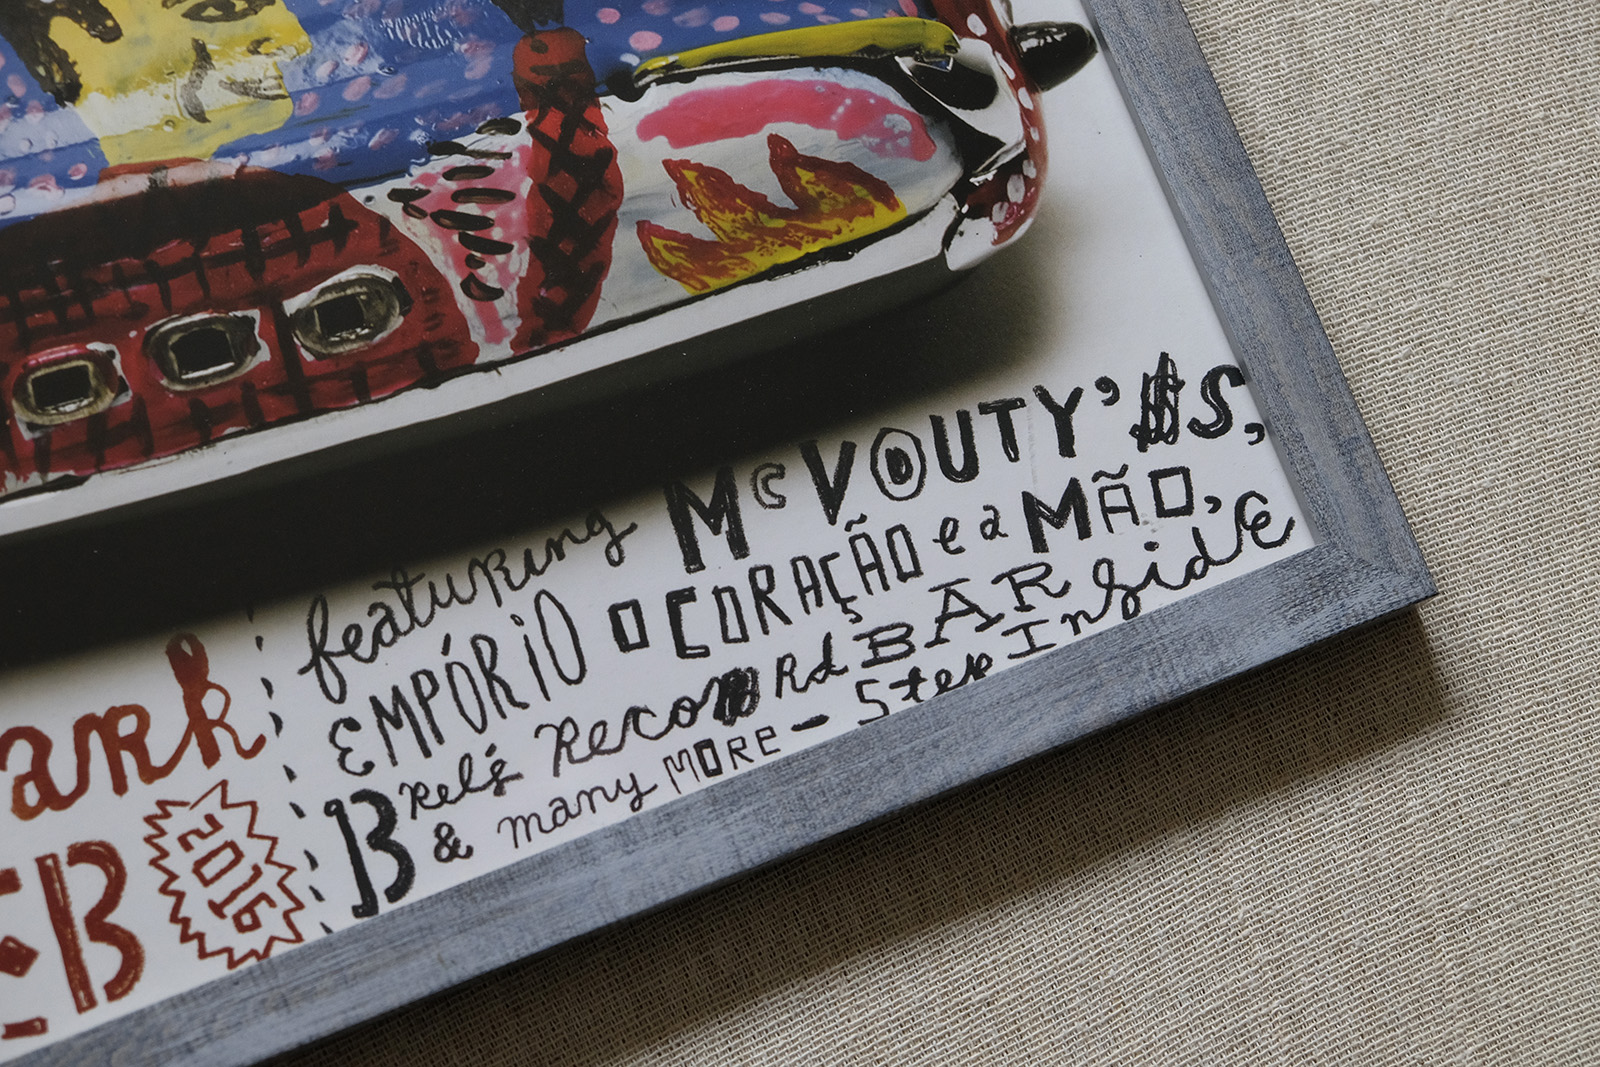 featuring McVOUTY'S,
EMPÓRIO O CORAÇÃO e a MÃO,
BRel's RecoRd BAR
& many MORE - Step InSide
ark
EB
2016